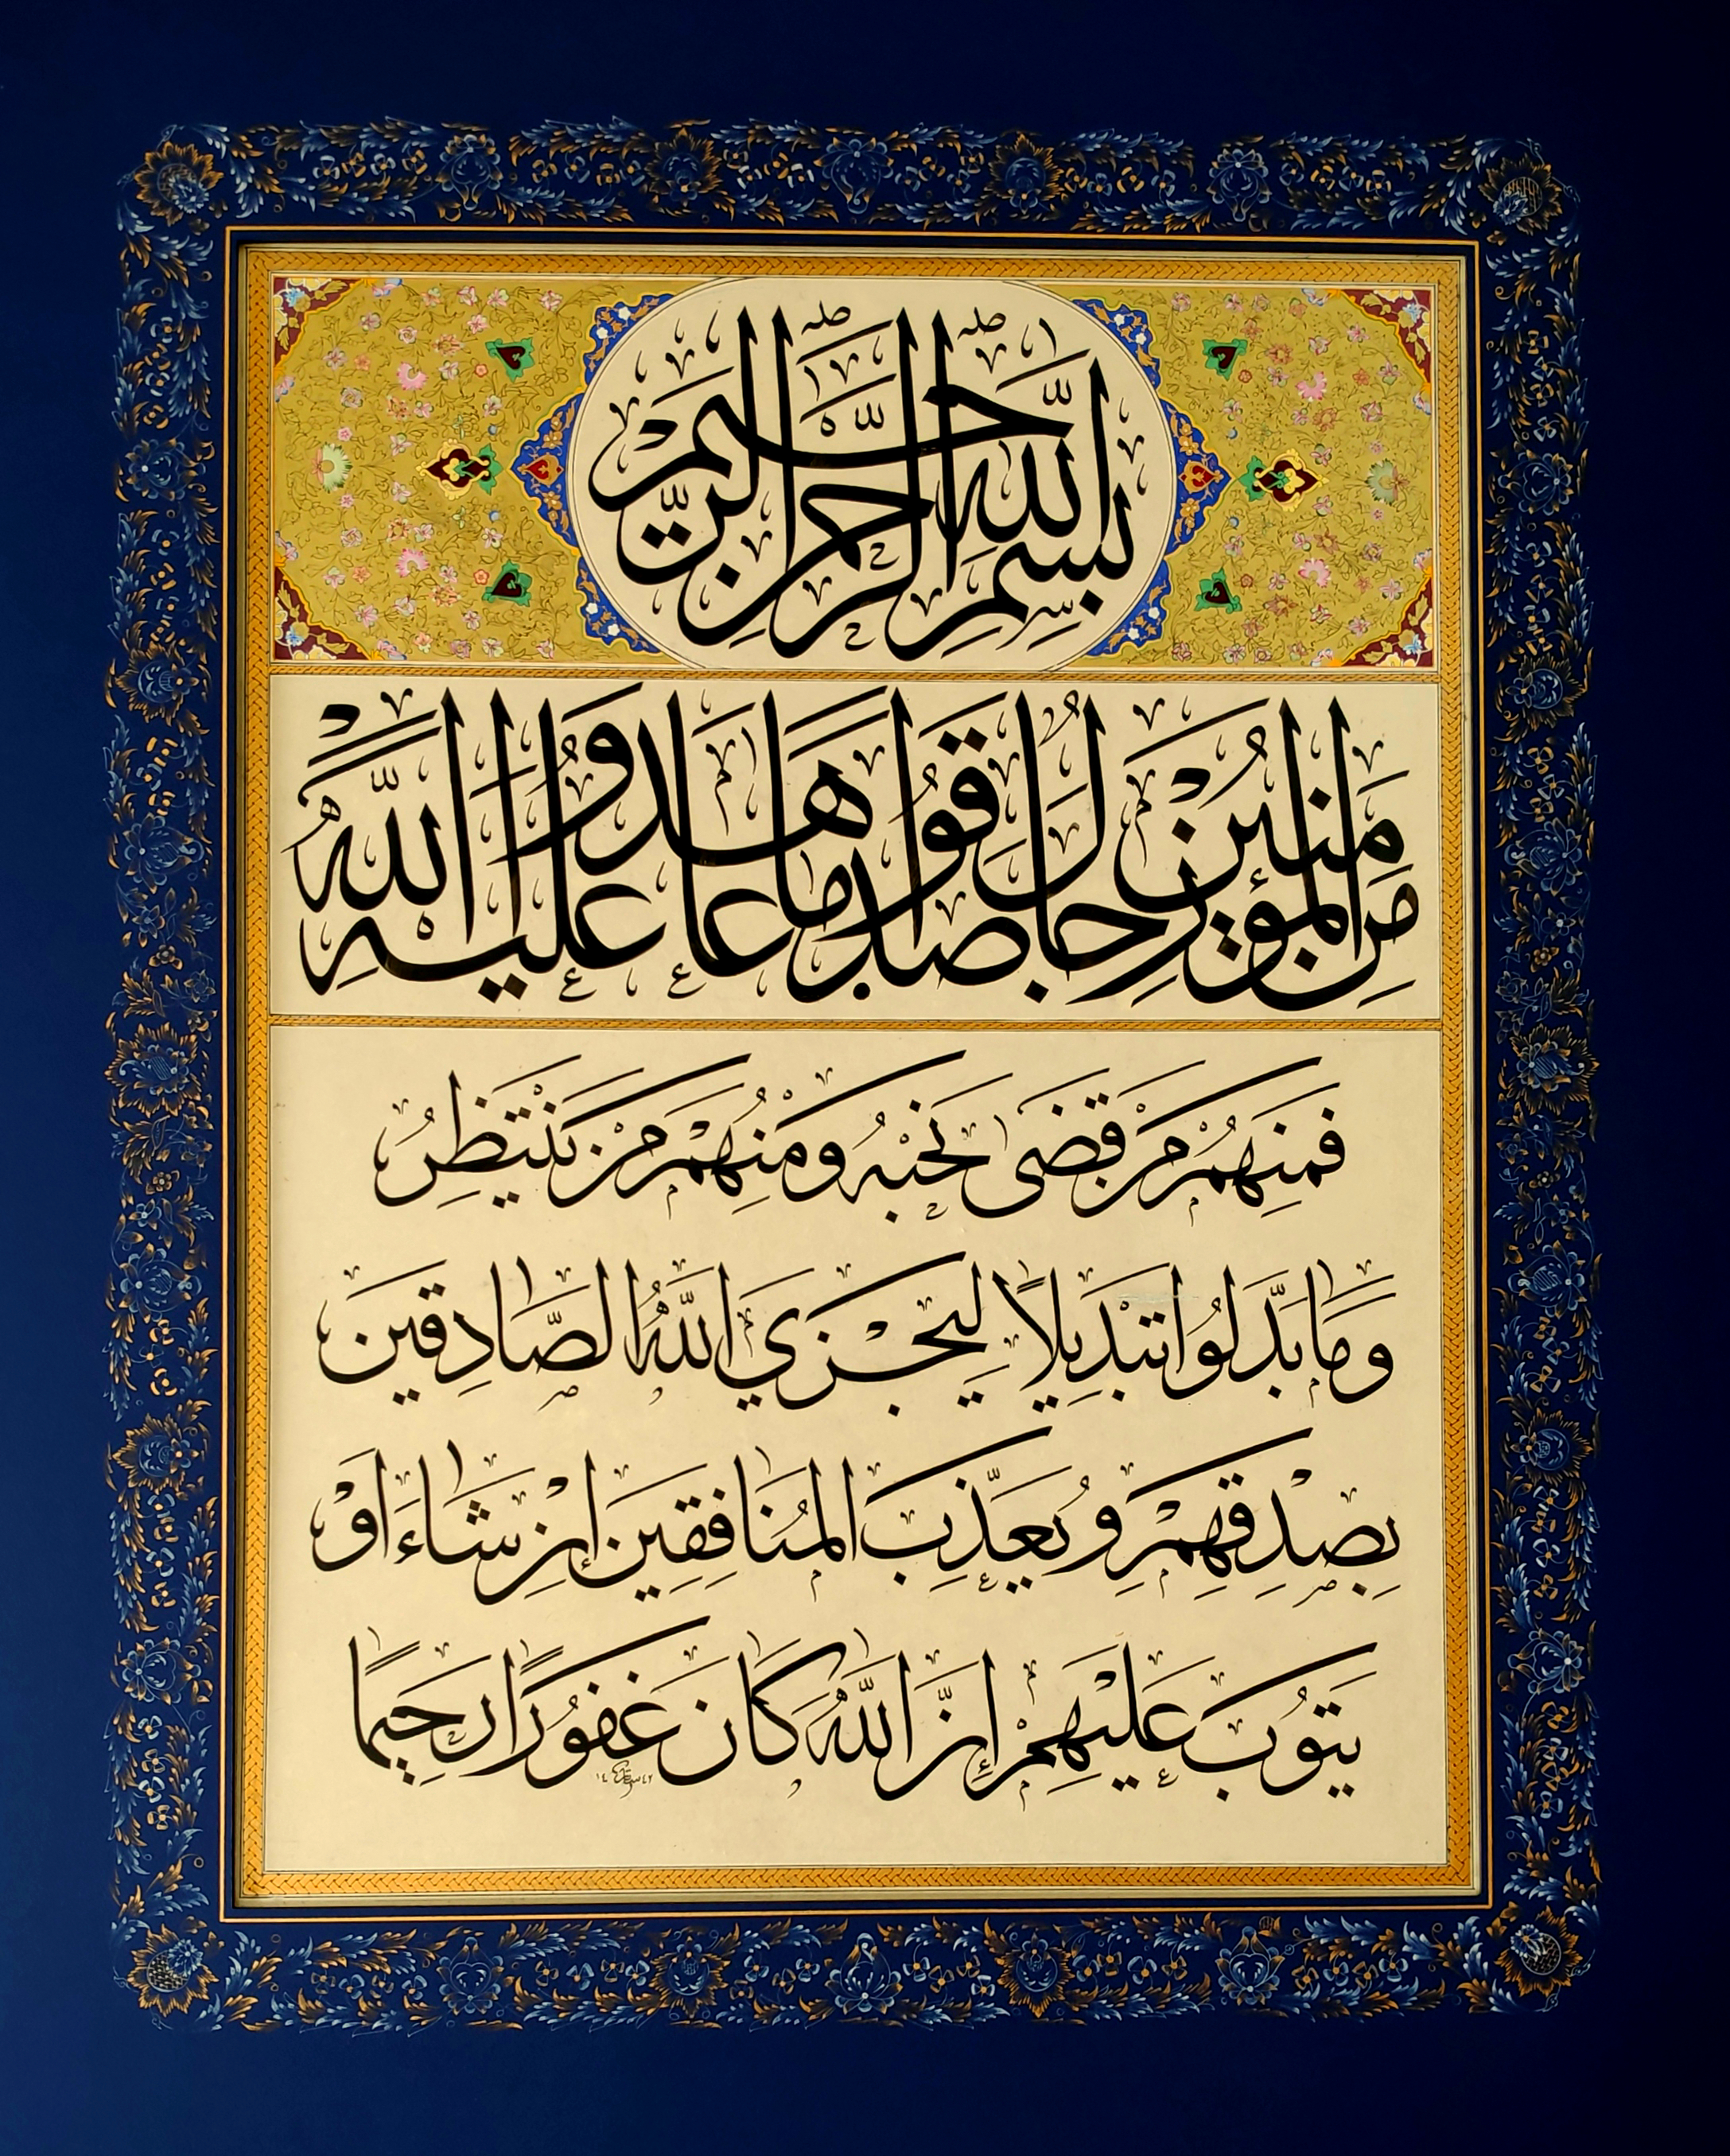 بِسْمِ اللَّهِ الرَّحْمٰنِ الرَّحِيمِ
مِنَ الْمُؤْمِنِينَ رِجَالٌ صَدَقُوا مَا عَاهَدُوا اللَّهَ عَلَيْهِ
فَمِنْهُمْ مَنْ قَضَى نَحْبَهُ وَمِنْهُمْ مَنْ يَنْتَظِرُ
وَمَا بَدَّلُوا تَبْدِيلاً لِيَجْزِيَ اللَّهُ الصَّادِقِينَ
بِصِدْقِهِمْ وَيُعَذِّبَ الْمُنَافِقِينَ إِنْ شَاءَ أَوْ
يَتُوبَ عَلَيْهِمْ إِنَّ اللَّهَ كَانَ غَفُورًا رَحِيمًا